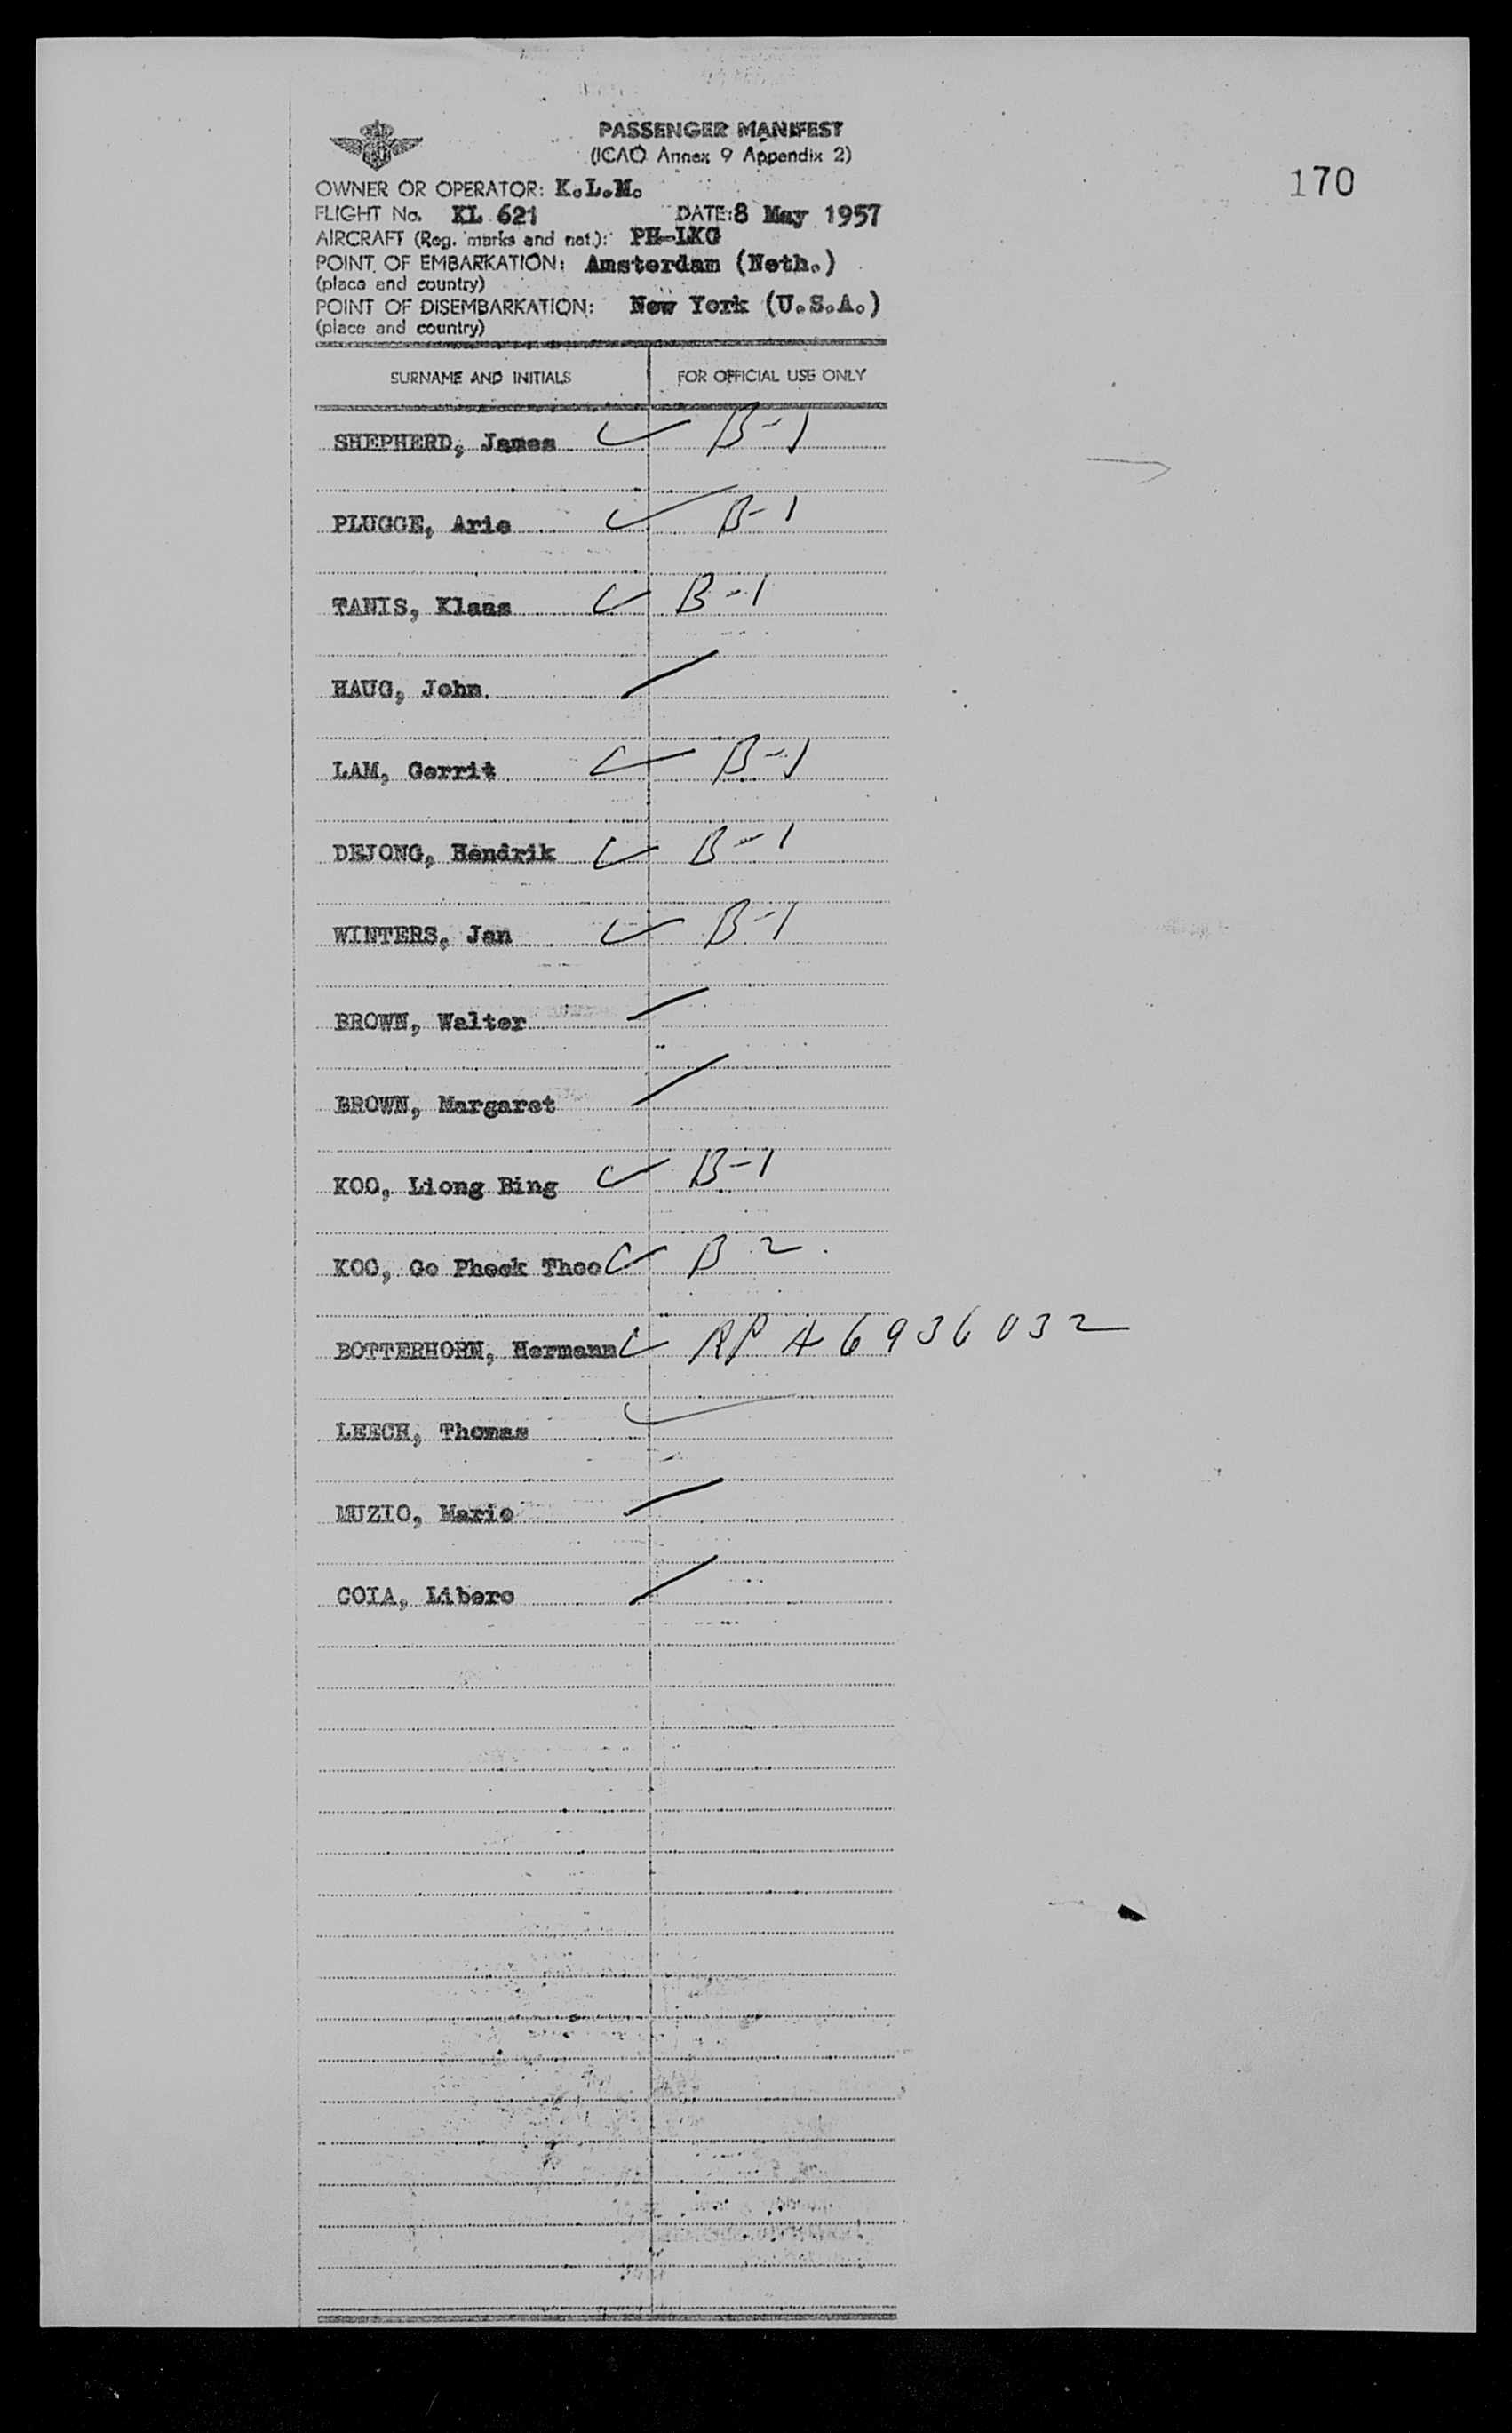 PASSENGER MANIFEST
(ICAO Annex 9 Appendix 2)
170
OWNER OR OPERATOR: K.L.M.
FLIGHT No. KL 621 DATE: 8 May 1957
AIRCRAFT (Reg. marks and nat.): PH-LKG
POINT OF EMBARKATION: Amsterdam (Neth.)
(place and country)
POINT OF DISEMBARKATION: New York (U.S.A.)
(place and country)
SURNAME AND INITIALS FOR OFFICIAL USE ONLY
SHEPHERD, James B-1
PLUGGE, Arie B-1
TANIS, Klaas B-1
HAUG, John
LAM, Gerrit B-1
DEJONG, Hendrik B-1
WINTERS, Jan B-1
BROWN, Walter
BROWN, Margaret
KOO, Liong Bing B-1
KOO, Go Pheek Thoo B 2
BOTTERHORN, Hermann RP A 6936032
LEECH, Thomas
MUZIO, Mario
GOIA, Libero